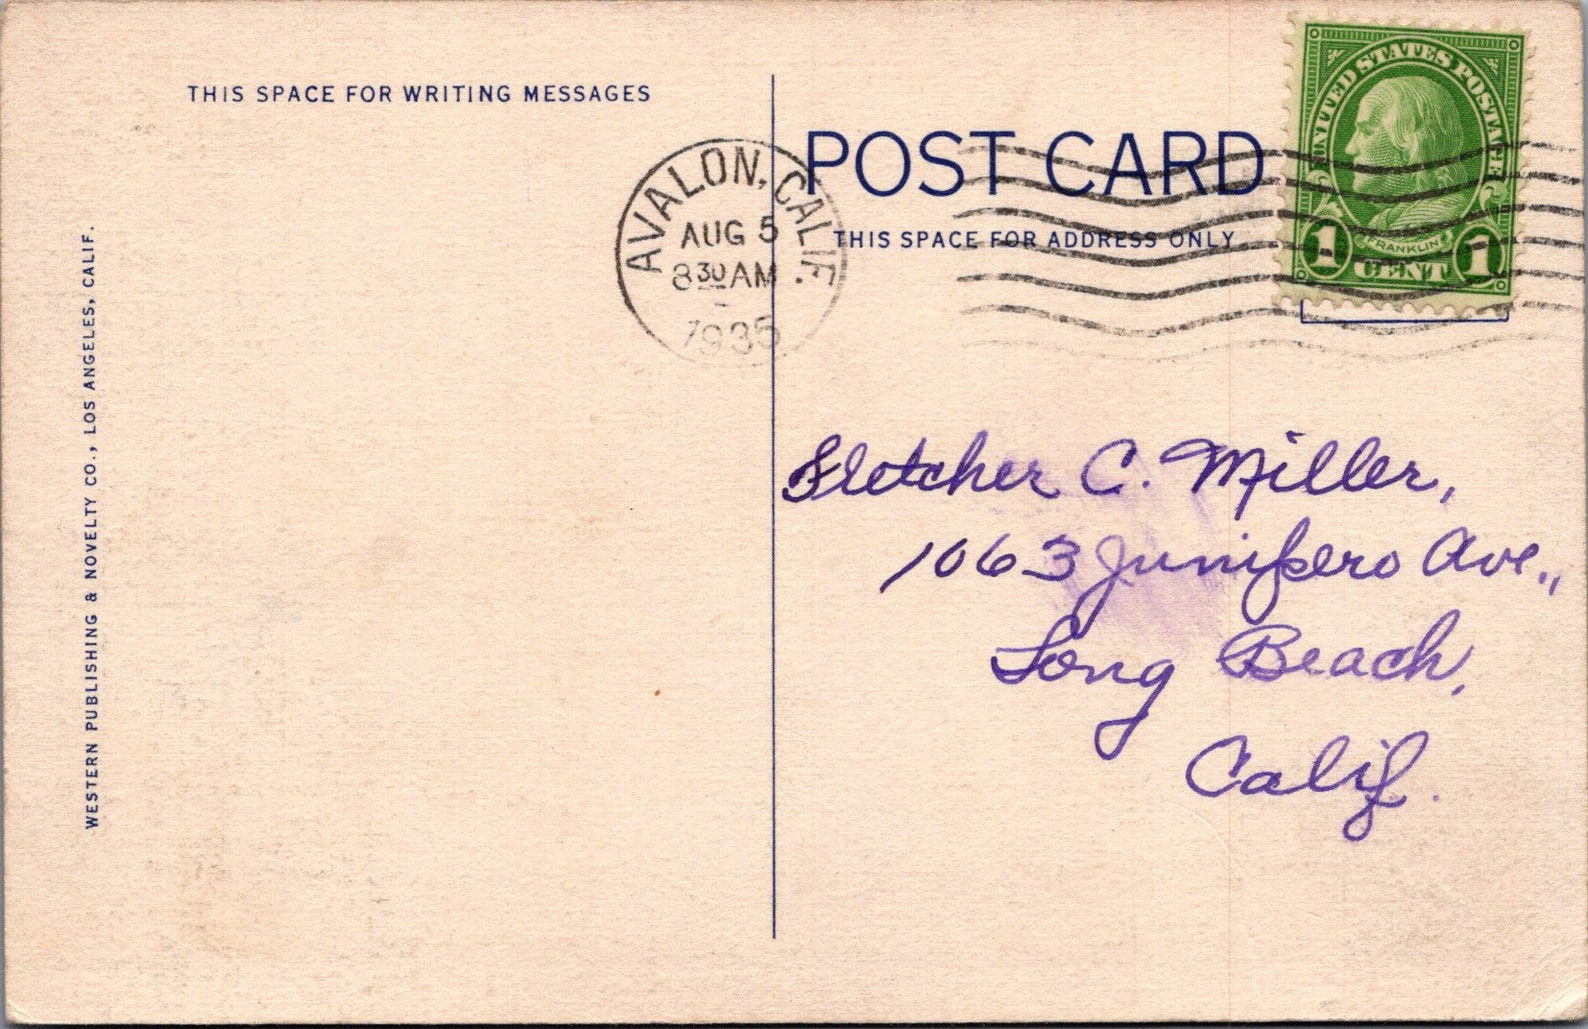 THIS SPACE FOR WRITING MESSAGES
WESTERN PUBLISHING & NOVELTY CO., LOS ANGELES, CALIF.
AVALON, CALIF.
AUG 5
8 30 AM
1935
POST CARD
THIS SPACE FOR ADDRESS ONLY
UNITED STATES POSTAGE
FRANKLIN
1 CENT 1
Fletcher C. Miller,
1063 Junipero Ave.,
Long Beach,
Calif.